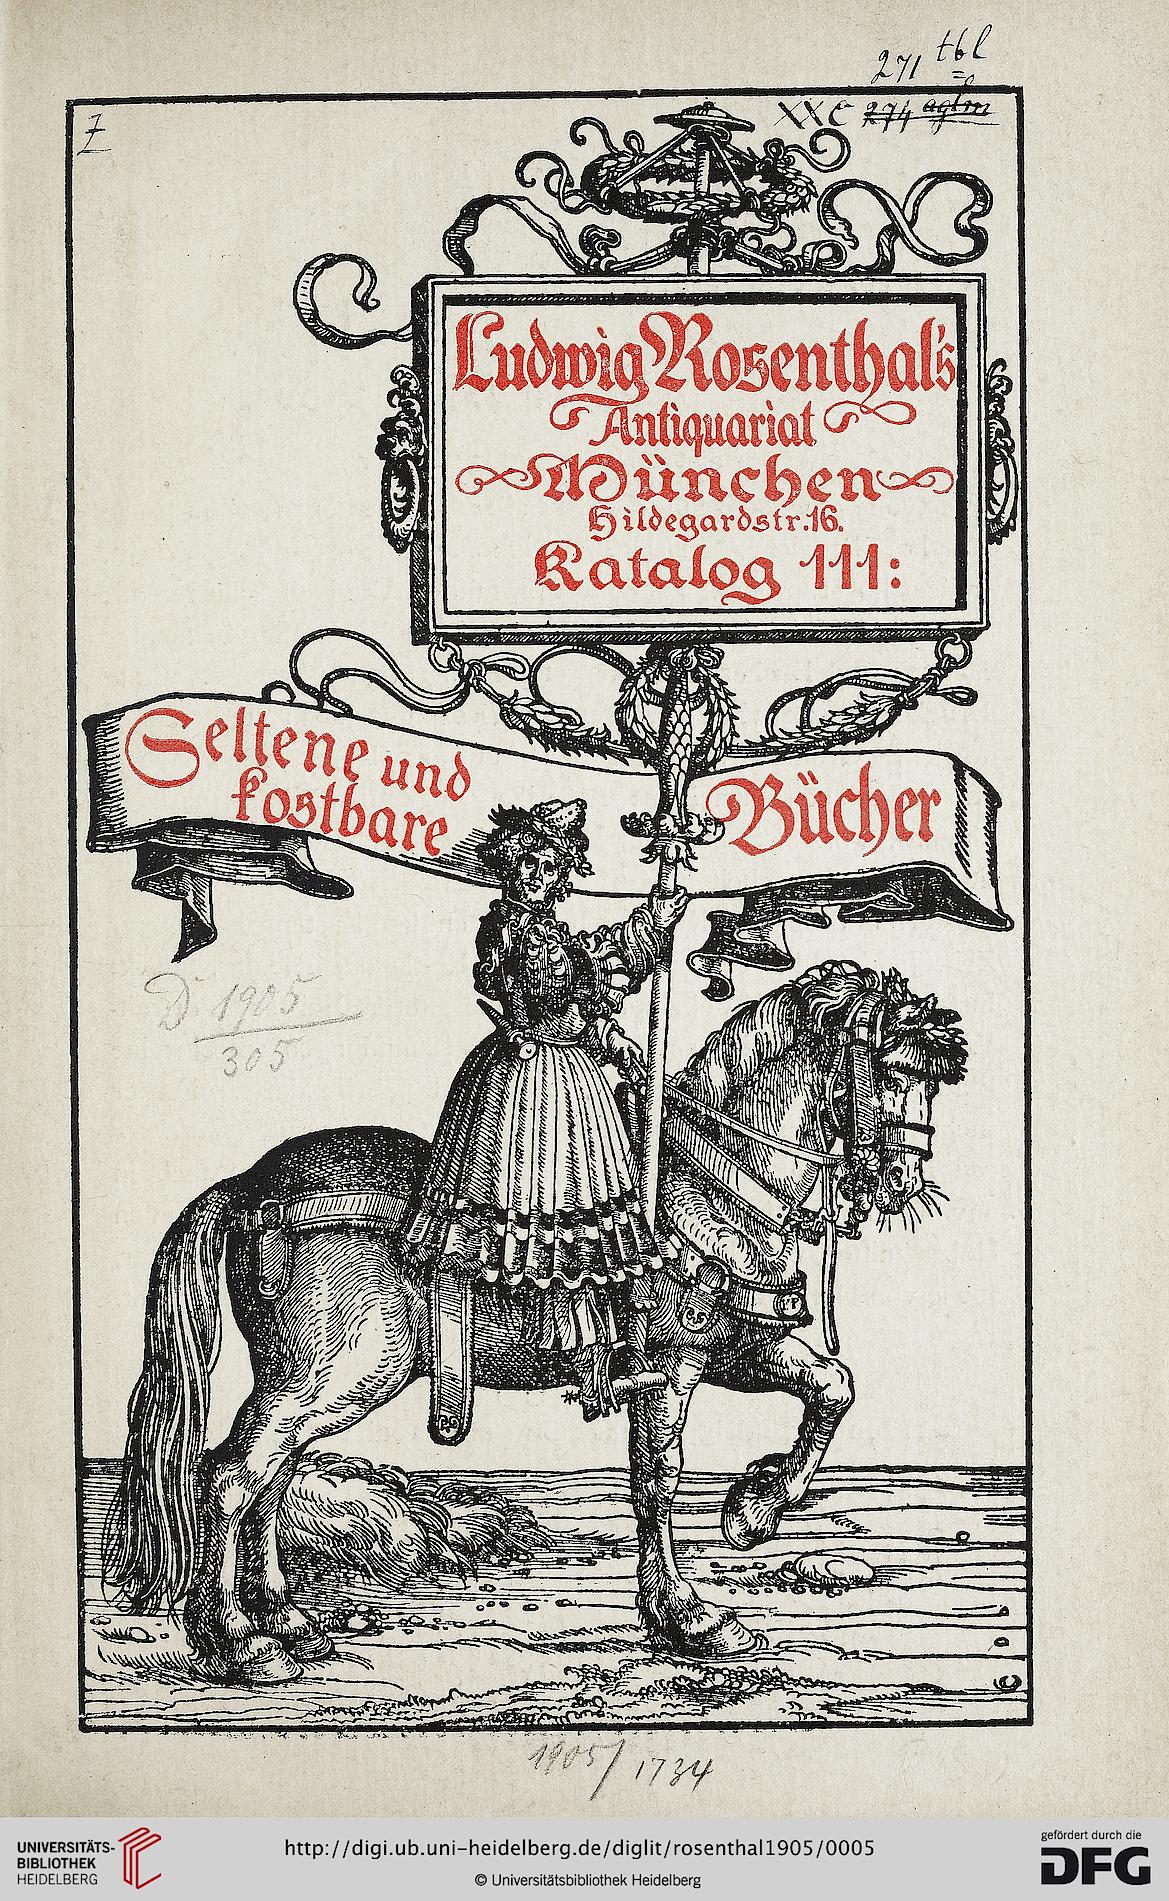 271 tbl
XX C 274 aglm
Z
Ludwig Rosenthal's
Antiquariat
München
Hildegardstr. 16.
Katalog 111:
Seltene und
kostbare
Bücher
D. 1905
305
1905/1734
UNIVERSITÄTS-
BIBLIOTHEK
HEIDELBERG
http://digi.ub.uni-heidelberg.de/diglit/rosenthal1905/0005
© Universitätsbibliothek Heidelberg
gefördert durch die
DFG